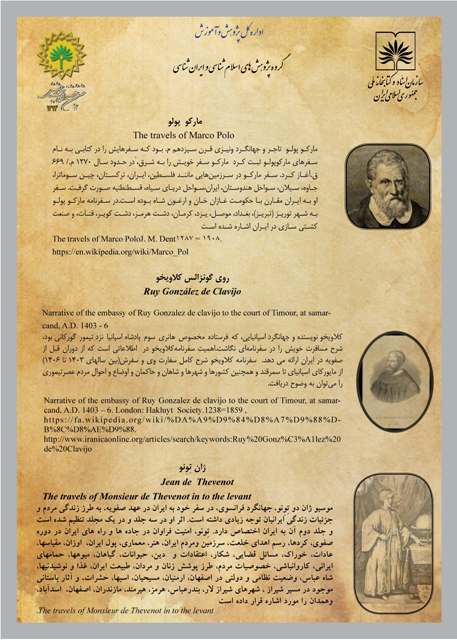 اداره کل پژوهش و آموزش
گروه پژوهش های اسلام شناسی و ایران شناسی
سازمان اسناد و کتابخانه ملی
جمهوری اسلامی ایران
مارکو پولو
The travels of Marco Polo
مارکو پولو تاجر و جهانگرد ونیزی قرن سیزدهم م. بود که سفرهایش را در کتابی به نام
سفرهای مارکوپولو ثبت کرد مارکو سفر خویش را به شرق، در حدود سال ۱۲۷۰ م./ ۶۶۹
ق.آغاز کرد. سفر مارکو در سرزمین‌هایی مانند فلسطین، ایران، ترکستان، چین، سوماترا،
جاوه، سیلان، سواحل هندوستان، ایران،سواحل دریای سیاه، قسطنطنیه صورت گرفت. سفر
او به ایران مقارن با حکومت غازان خان و ارغون شاه بوده است.در سفرنامه مارکو پولو
به شهر توریز (تبریز)، بغداد، موصل، یزد، کرمان، دشت هرمز، دشت کویر، قنات، و صنعت
کشتی سازی در ایران اشاره شده است
The travels of Marco PoloJ. M. Dent۱۲۸۷ = ۱۹۰۸.
https://en.wikipedia.org/wiki/Marco_Pol
روی گونزالس کلاویخو
Ruy González de Clavijo
Narrative of the embassy of Ruy Gonzalez de clavijo to the court of Timour, at samar-
cand, A.D. 1403 - 6
کلاویخو نویسنده و جهانگرد اسپانیایی، که فرستاده مخصوص هانری سوم پادشاه اسپانیا نزد تیمور گورکانی بود،
شرح مسافرت خویش را در سفرنامه‌ای نگاشت‌اهمیت سفرنامه‌کلاویخو در اطلاعاتی است که از دوران قبل از
صفویه در ایران ارائه می دهد. سفرنامه کلاویخو شرح کامل سفارت وی و سفرش(بین سالهای ۱۴۰۳ تا ۱۴۰۶)
از مایورکای اسپانیای تا سمرقند و همچنین کشورها و شهرها و شاهان و حاکمان و اوضاع و احوال مردم عصرتیموری
را می‌توان به وضوح دریافت.
Narrative of the embassy of Ruy Gonzalez de clavijo to the court of Timour, at samar-
cand, A.D. 1403 – 6. London: Hakhuyt Society.1238=1859 .
https://fa.wikipedia.org/wiki/%DA%A9%D9%84%D8%A7%D9%88%D-
B%8C%D8%AE%D9%88.
http://www.iranicaonline.org/articles/search/keywords:Ruy%20Gonz%C3%A1lez%20
de%20Clavijo
ژان تِونو
Jean de Thevenot
The travels of Monsieur de Thevenot in to the levant
موسیو ژان دو تونو، جهانگرد فرانسوی، در سفر خود به ایران در عهد صفویه، به طرز زندگی مردم و
جزئیات زندگی ایرانیان توجه زیادی داشته است. اثر او در سه جلد و در یک مجلد تنظیم شده است
و جلد دوم آن به ایران اختصاص دارد. تونو، امنیت فراوان در جاده ها و راه های ایران در دوره
صفوی، کردها، رسم اهدای خلعت، سرزمین ومردم ایران، هنر، معماری، پول ایران، اوزان، مقیاسها،
عادات، خوراک، مسائل قضایی، شکار، اعتقادات و دین، حیوانات، گیاهان، میوها، حمامهای
ایرانی، کاروانیاشی، خصوصیات مردم، طرز پوشش زنان و مردان، طبیعت ایران، غذا و نوشیدنیها،
شاه عباس، وضعیت نظامی و دولتی در اصفهان، ارمنیان، مسیحیان، اسبها، حشرات، و آثار باستانی
موجود در مسیر شیراز ، شهرهای شیراز لار، بندرعباس، هرمز، هیرمند، مازندران، اصفهان، اسدآباد،
وهمدان را مورد اشاره قرار داده است
.The travels of Monsieur de Thevenot in to the levant